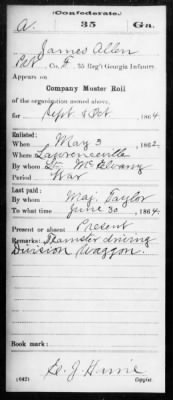 (Confederate.)
A. 35 Ga.
James Allen
Pvt, Co. F, 35 Reg't Georgia Infantry.
Appears on
Company Muster Roll
of the organization named above,
for Sept & Oct, 1864.
Enlisted:
When May 3, 1862.
Where Lawrenceville
By whom Lt. McElvany
Period War
Last paid:
By whom Maj. Taylor
To what time June 30, 1864.
Present or absent Present
Remarks: Teamster driving
Division Waggon.
Book mark:
(642) Copyist.